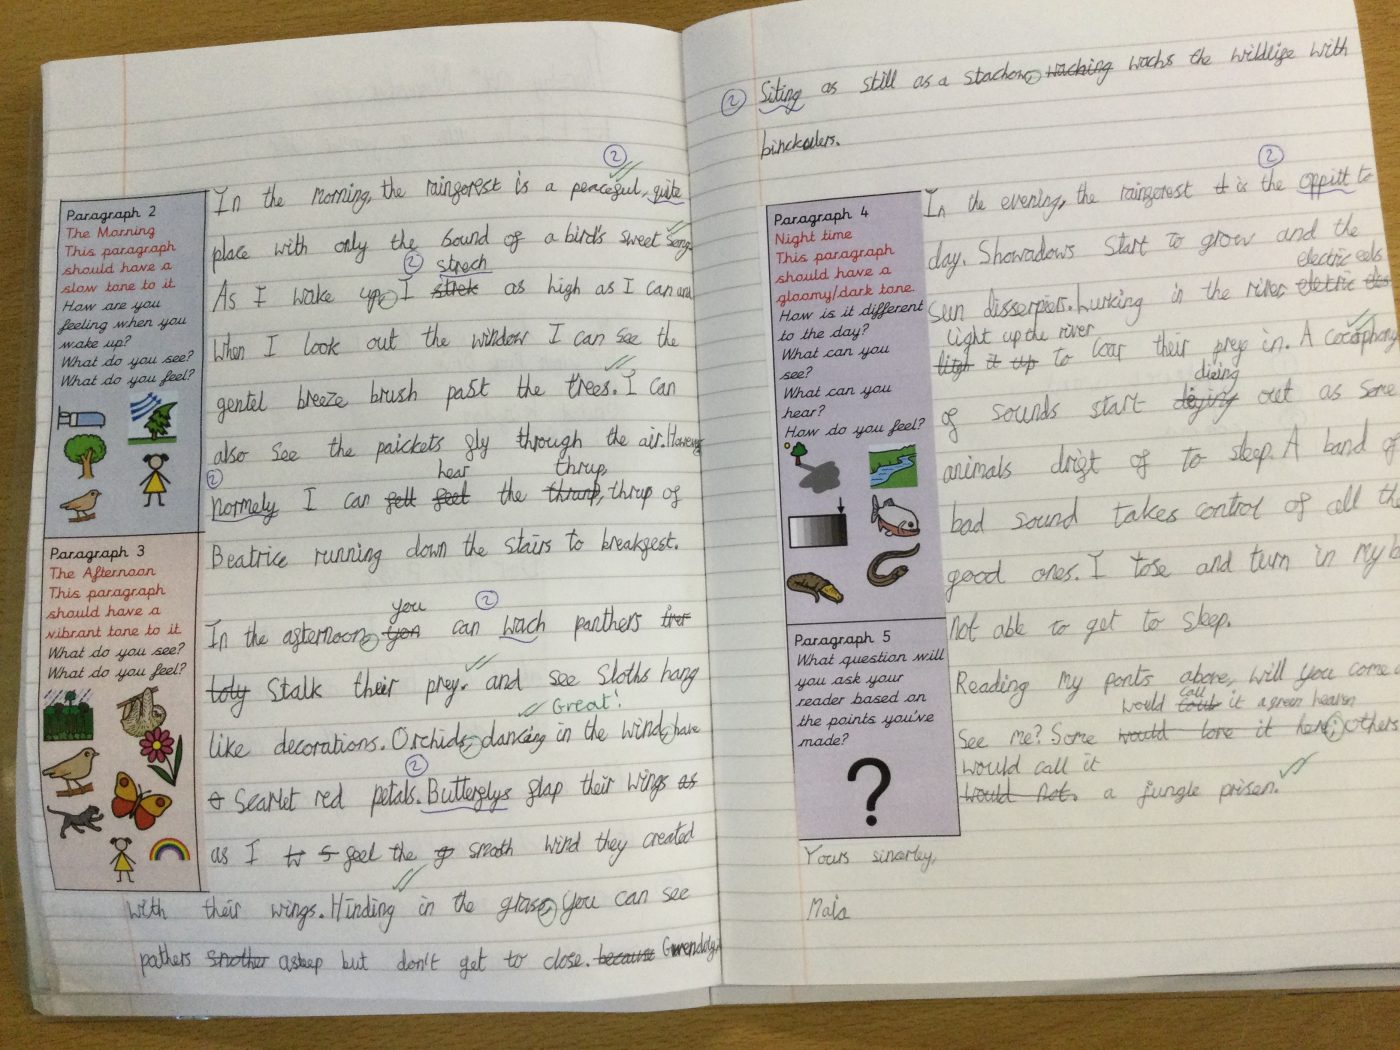 ②
In the morning, the raingorest is a peaceful, quite
place with only the sound of a bird's sweet song.
② strech
As I wake up, I strek as high as I can and
when I look out the window I can see the
gentel breeze brush past the trees. I can
also see the paickets fly through the air. However
② hear thrup
normely I can felt feel the thrump, thrup of
Beatrice running down the stairs to breakfest.
you ②
In the afternoon, yon can wach panthers
toly stalk their prey. and see sloths hang
Great!
like decorations. Orchids, dancing in the wind, have
②
scarlet red petals. Butterflys flap their wings as
as I feel the smoth wind they created
with their wings. Hinding in the grass, you can see
pathers snother asleep but don't get to close. because Gwendolyn
Paragraph 2
The Morning
This paragraph
should have a
slow tone to it
How are you
feeling when you
wake up?
What do you see?
What do you feel?
Paragraph 3
The Afternoon
This paragraph
should have a
vibrant tone to it
What do you see?
What do you feel?
② Siting as still as a stachow, waching wachs the wildlife with
binckoulers.
②
In the evening, the raingorest it is the oppitt to
day. Showadows start to grow and the
electric eels
sun disserpiers. Lurking in the river eletric eles
light up the river
ligh it up to loar their prey in. A cocophony
dieing
of sounds start deying out as some
animals drift of to sleep. A band of
bad sound takes control of all the
good ones. I tose and turn in my b
not able to get to sleep.
Reading my ponts above, will you come
would call it a green heaven
see me? Some would love it here; others
would call it
would not. a jungle prisen.
Yours sincerley,
Maia
Paragraph 4
Night time
This paragraph
should have a
gloomy/dark tone.
How is it different
to the day?
What can you
see?
What can you
hear?
How do you feel?
Paragraph 5
What question will
you ask your
reader based on
the points you've
made?
?